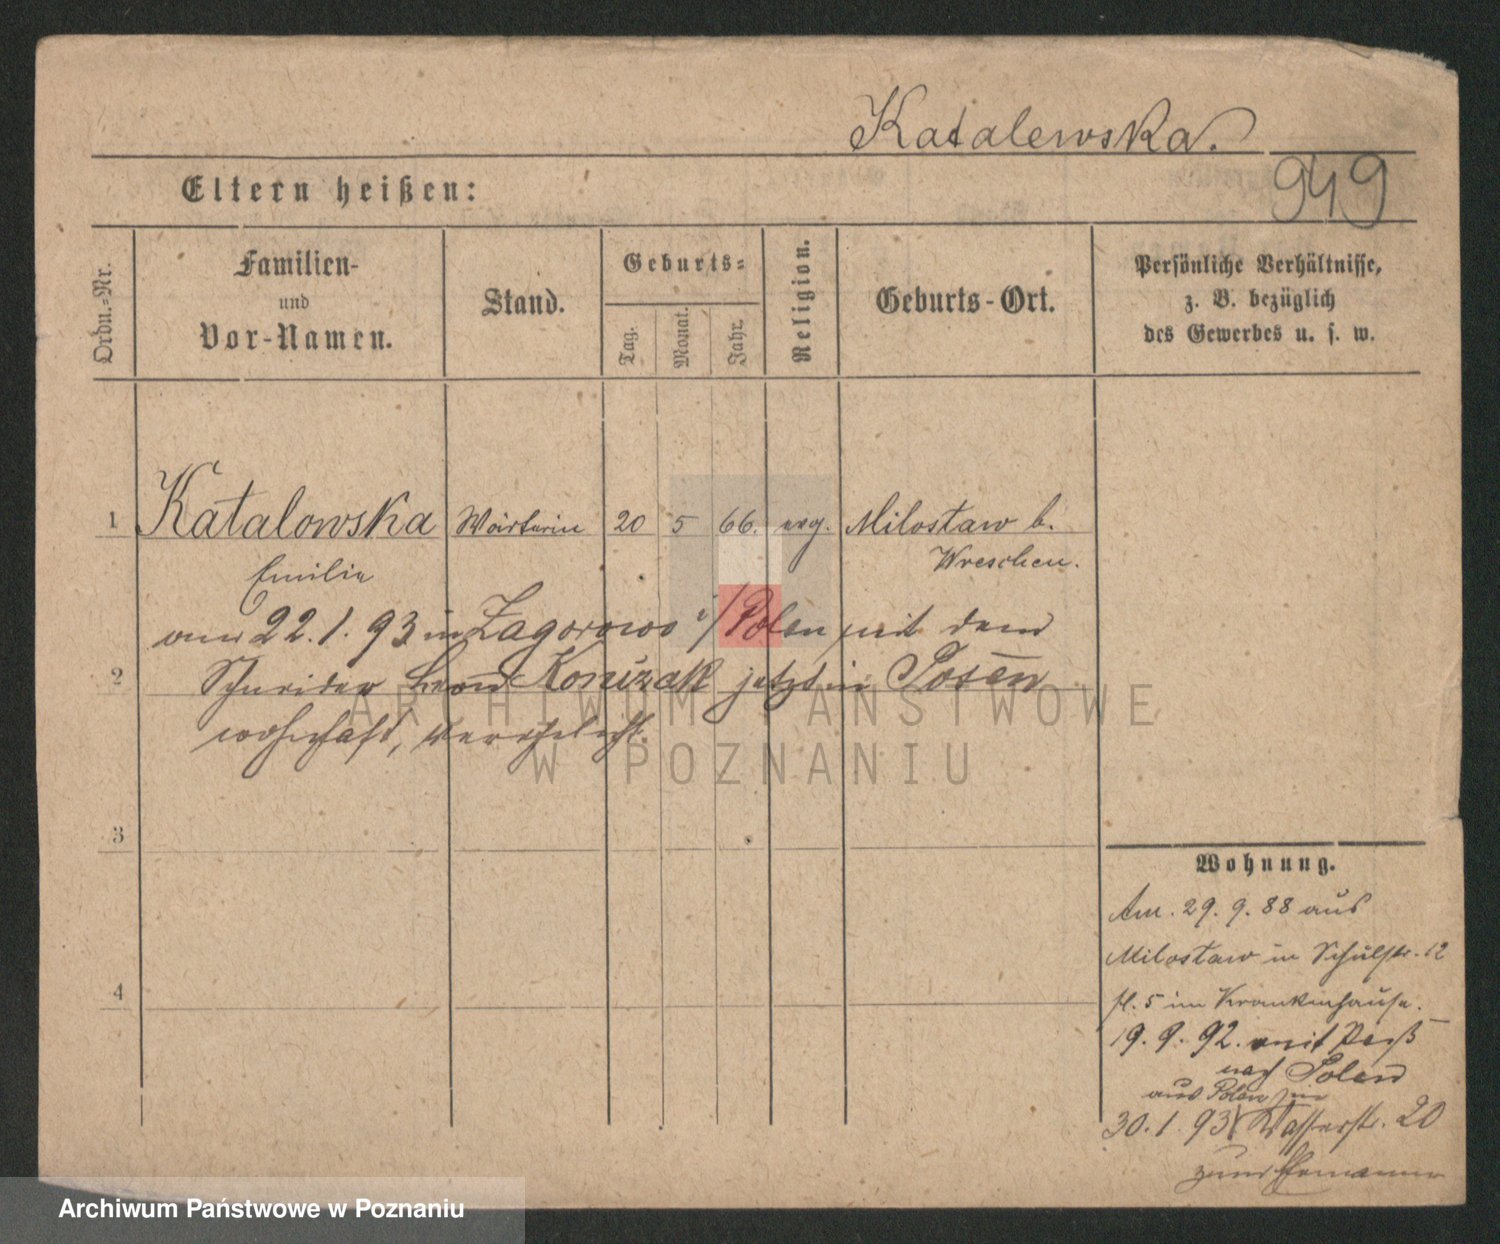 Katalewska.
949
Eltern heißen:
Ordn.-Nr.
Familien-
und
Vor-Namen.
Stand.
Geburts-
Tag.
Monat.
Jahr.
Religion.
Geburts-Ort.
Persönliche Verhältnisse,
z. B. bezüglich
des Gewerbes u. s. w.
1 Katalowska Wärterin 20 5 66. evg. Miloslaw b.
Emilie Wreschen.
am 22.1.93 in Zagorowo i/Polen mit dem
2 Schneider Leon jetzt in Posen
wohnhaft, verehelicht.
3
4
Wohnung.
Am. 29.9.88 aus
Miloslaw in Schulstr. 12
fl. 5 im Krankenhause.
19.9.92. mit Paß
nach Polen
aus Polen
30.1.93 Wasserstr. 20
zum Ehemann
ARCHIWUM PAŃSTWOWE
W POZNANIU
Archiwum Państwowe w Poznaniu